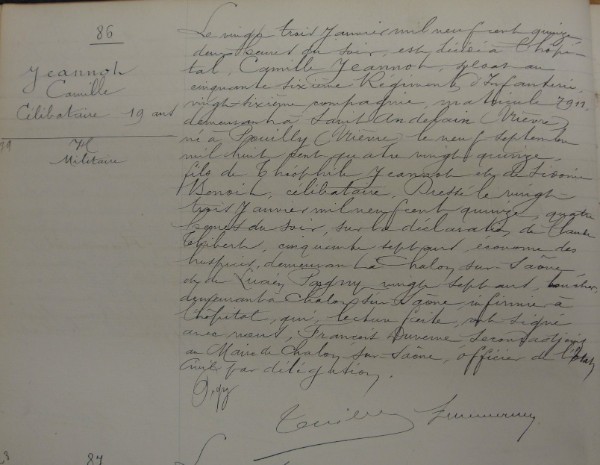 86
Jeannot
Camille
Célibataire 19 ans
H
Militaire
Le vingt trois Janvier mil neuf cent quinze
deux heures du soir, est décédé à l'hôpi-
tal, Camille Jeannot, soldat au
cinquante sixième Régiment d'Infanterie,
vingt-sixième compagnie, matricule 7912
demeurant à Saint Andelain (Nièvre)
né à Pouilly (Nièvre) le neuf Septembre
mil huit cent quatre vingt quinze,
fils de Théophile Jeannot et de
Benoit, célibataire. Dressé le vingt-
trois Janvier mil neuf cent quinze, quatre
heures du soir, sur la déclaration de Claude
cinquante sept ans, économe des
hospices, demeurant à Chalon-sur-Saône
et de Lucien vingt sept ans,
demeurant à Chalon-sur-Saône, infirmier à
l'hôpital, qui, lecture faite, ont signé
avec nous, François second adjoint
au Maire de Chalon-sur-Saône, officier de l'Etat
Civil par délégation.
87